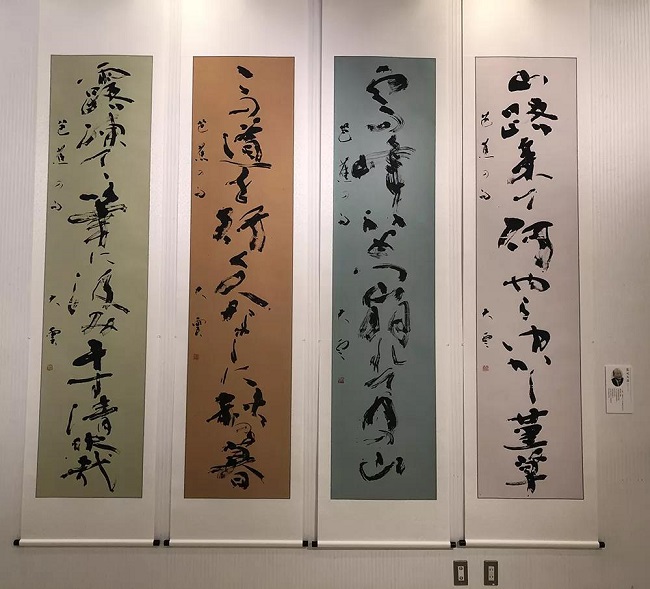 山路来て何やらゆかし菫草
芭蕉の句
大雲
雲の峰いくつ崩れて月の山
芭蕉の句
大雲
この道を行く人なしに秋の暮
芭蕉の句
大雲
露凍てて筆に汲み干す清水哉
芭蕉の句
大雲